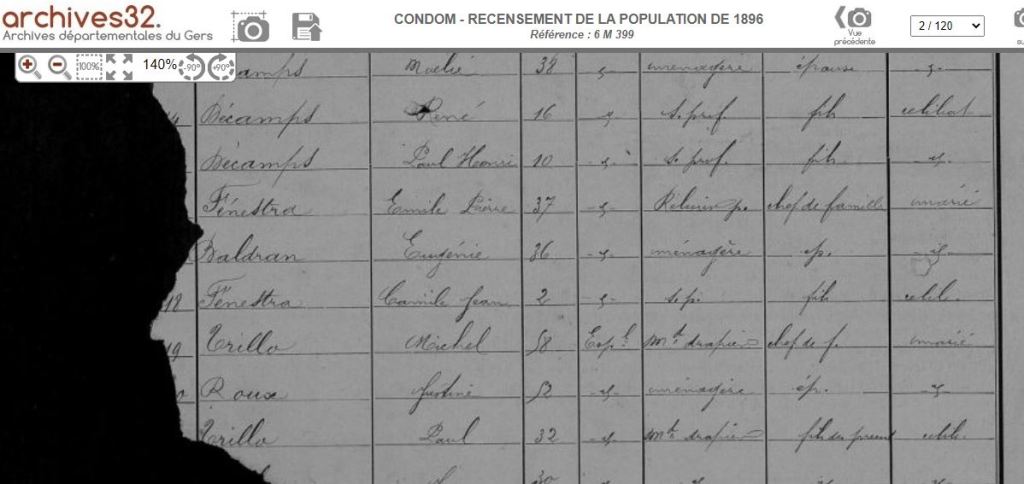 archives32.
Archives départementales du Gers
CONDOM - RECENSEMENT DE LA POPULATION DE 1896
Référence : 6 M 399
Vue
précédente
2 / 120
100%
140%
-90°
+90°
amps 38 -"- ménagère épouse -"-
Décamps René 16 -"- s. prof. fils célibat
Décamps Paul Henri 10 -"- s. prof. fils -"-
Fénestra Emile Pierre 37 -"- chef de famille marié
Baldran Eugénie 36 -"- ménagère ép. -"-
18 Fénestra Camile Jean 2 -"- s.p. fils célib.
19 Trillo Michel 58 Esp.l Md drapier chef de f. marié
Roux Justine 52 -"- ménagère ép. -"-
Trillo Paul 32 -"- Md drapier fils des préced célib.
30